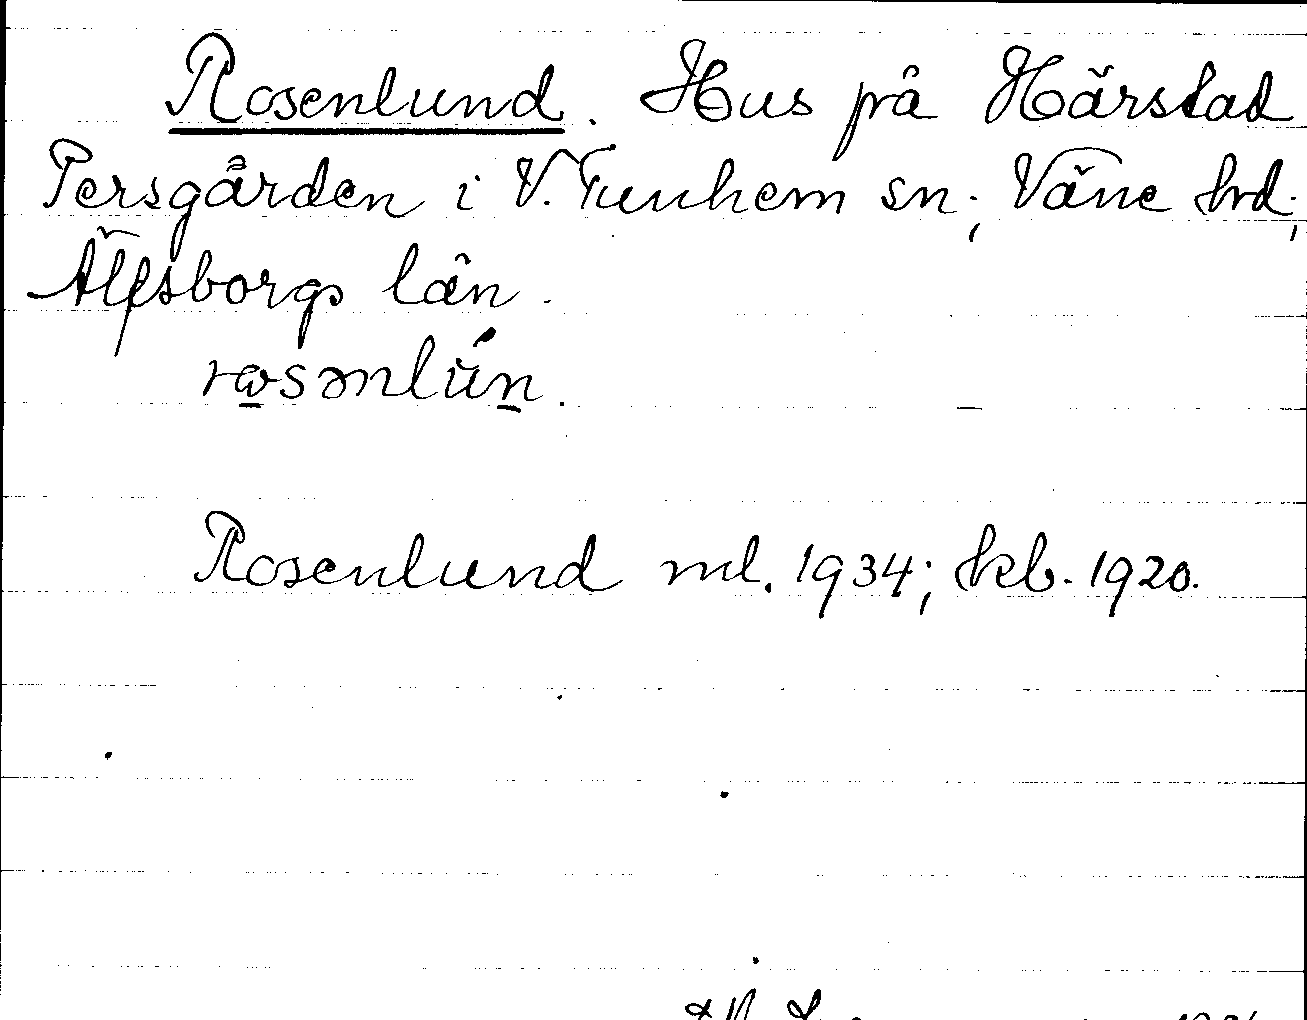 Rosenlund. Hus på Härstad
Persgården i V. Tunhem sn; Väne hd;
Älfsborgs län.
rosənlún.
Rosenlund ml. 1934; kb. 1920.